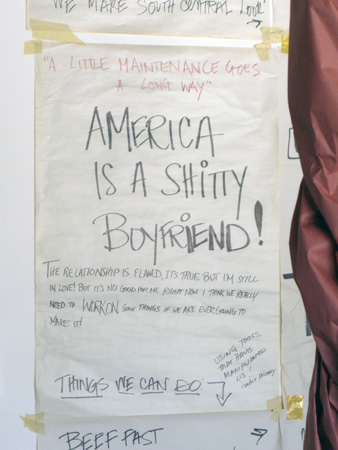 WE MAKE SOUTH CENTRAL
"A LITTLE MAINTENANCE GOES
A LONG WAY"
AMERICA
IS A SHITTY
BOYFRIEND!
THE RELATIONSHIP IS FLAWED, IT'S TRUE BUT I'M STILL
IN LOVE! BUT IT'S NO GOOD FOR ME RIGHT NOW I THINK WE REALLY
NEED TO WORK ON SOME THINGS IF WE ARE EVER GOING TO
MAKE IT!
USING TOOLS
THAT HAVE
MANIPULATED
US
THINGS WE CAN DO
BED FAST